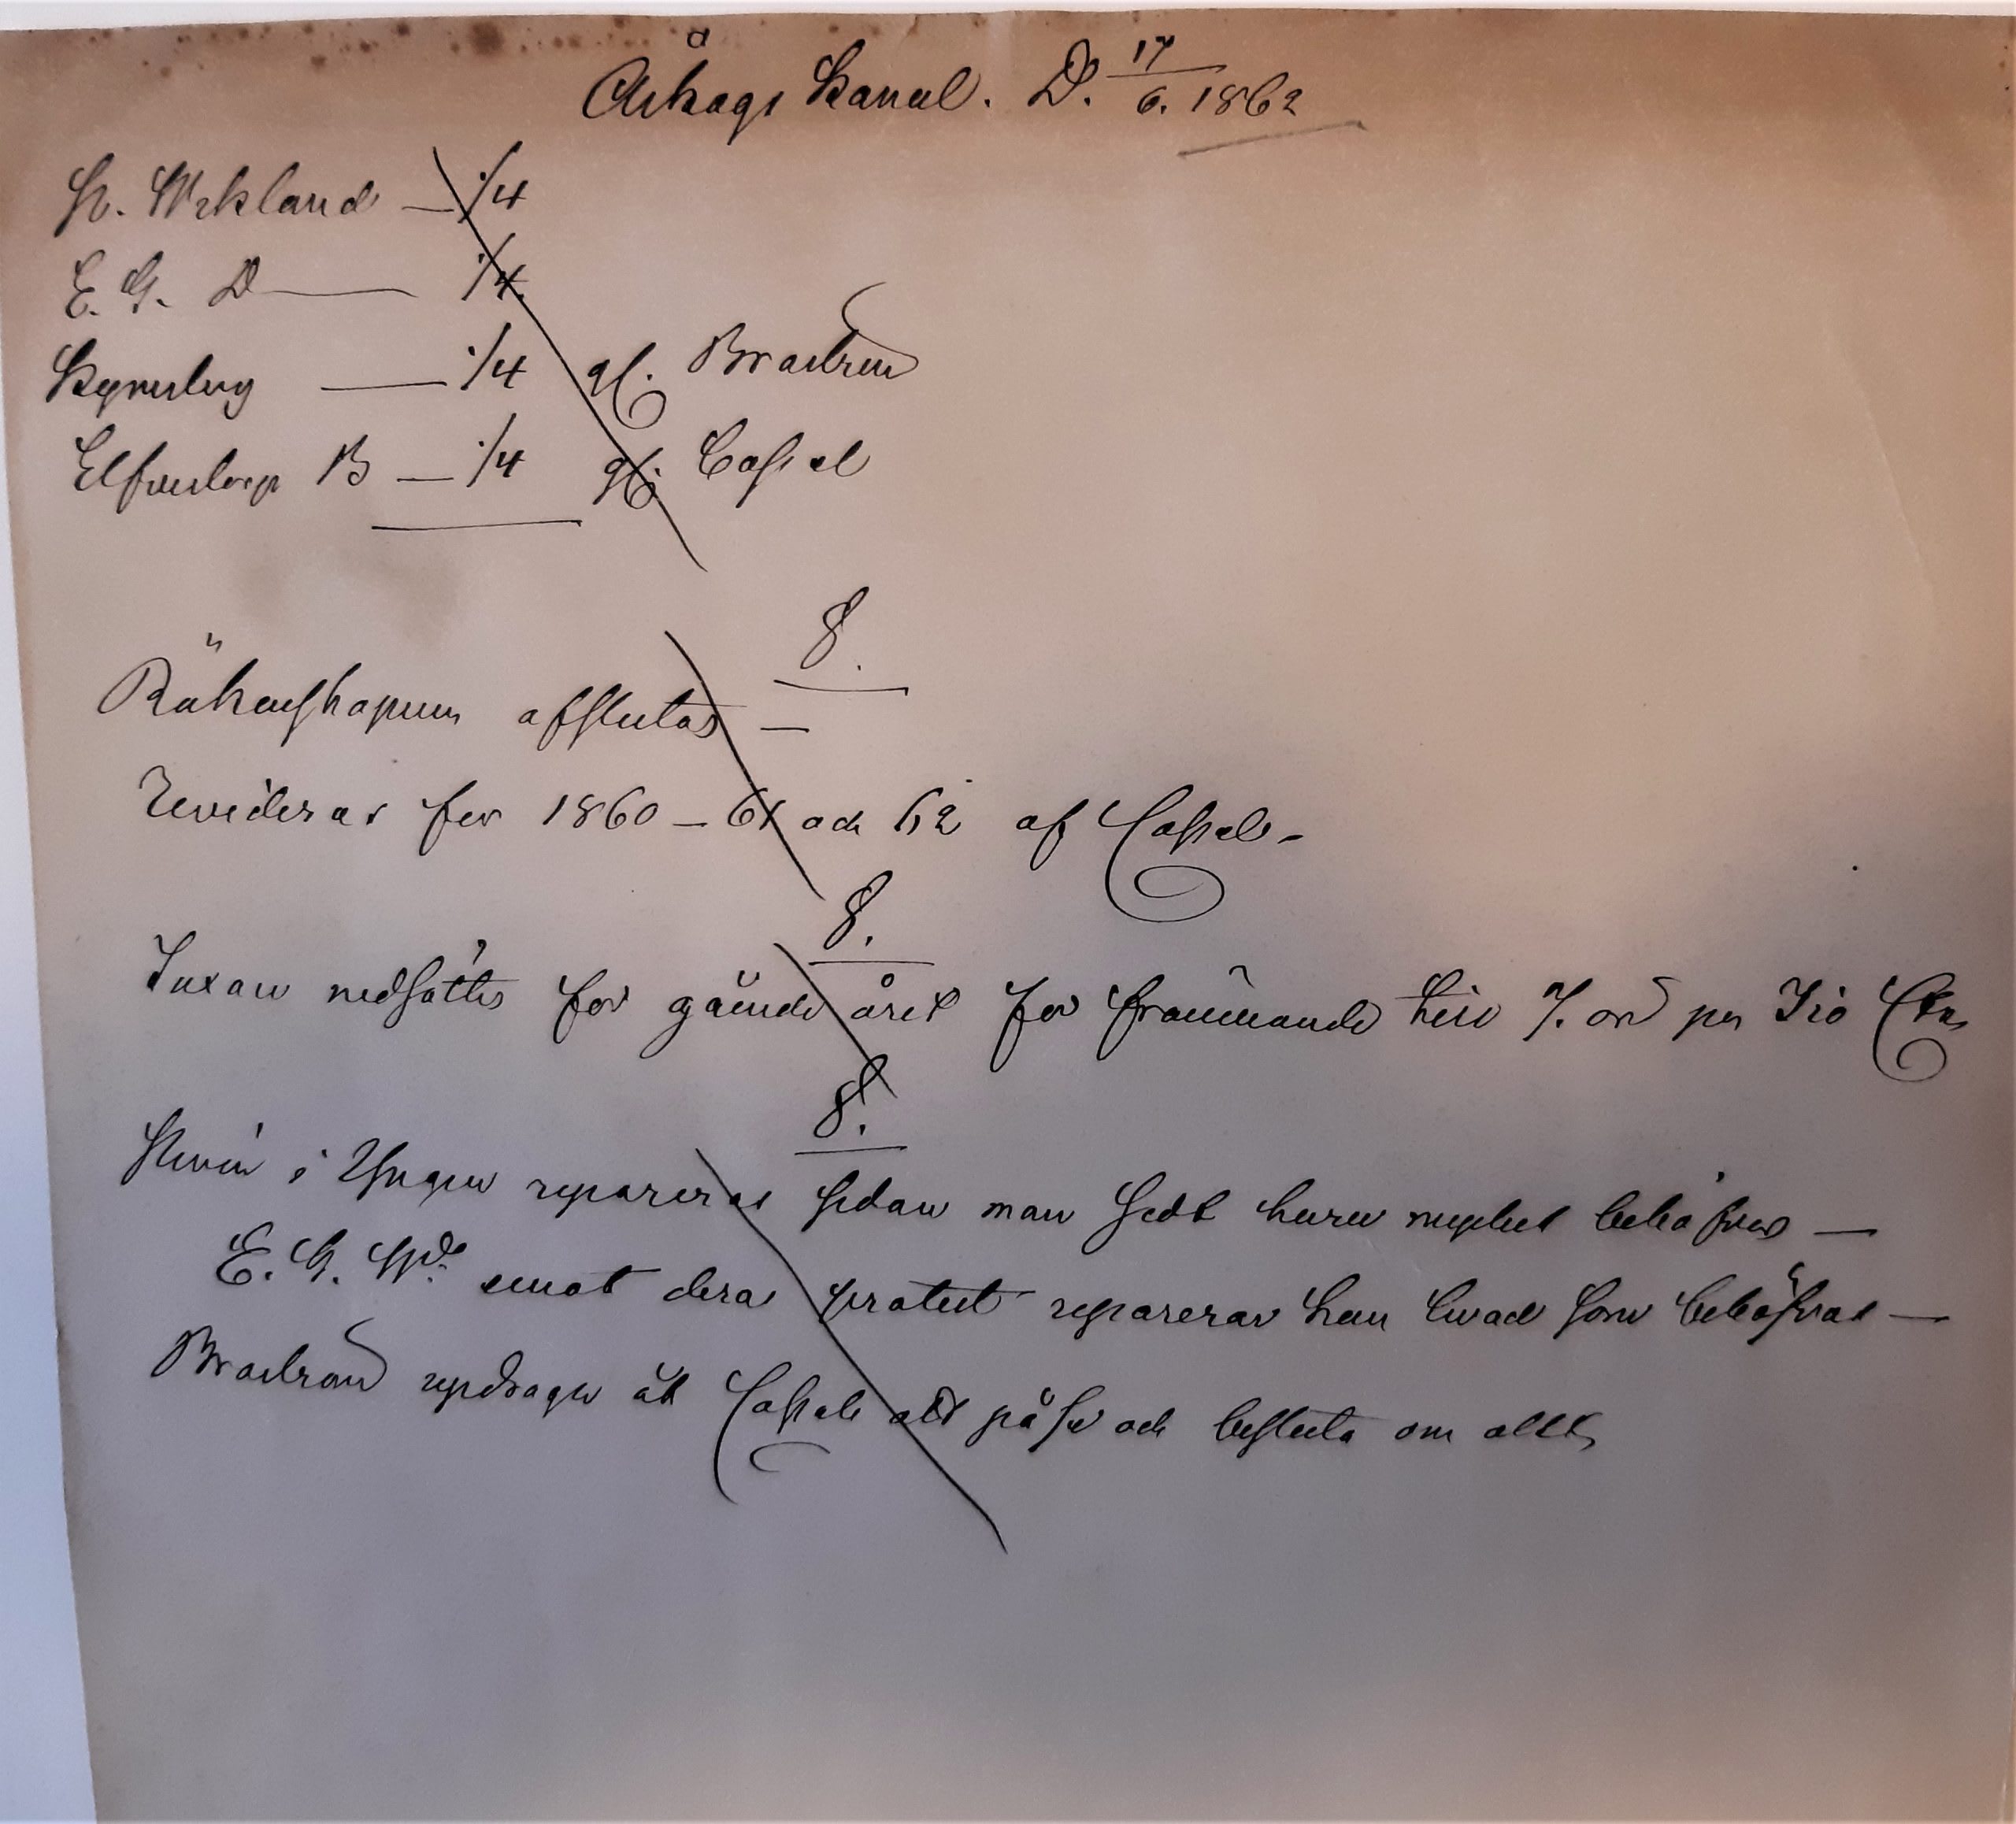 Åskags Kanal. D. 17/6. 1862
H. Wekland — 1/4
E. G. D — 1/4.
— 1/4 gl. Broström
Elfvestorp B — 1/4 gl. Cassel
§.
Räkenskapern afslutas —
Revideras för 1860 – 61 och 62 af Cassel –
§.
Taxan nedsättes för gående året för främmande till 7. ör per Tio Ctn
§.
i Yngen repareras sedan man sedt huru mycket behöfves —
E. G. Wd. emot deras protest reparerar han hvad som behöfvas —
Broström updrager åt Cassel att påse och besluta om allt,